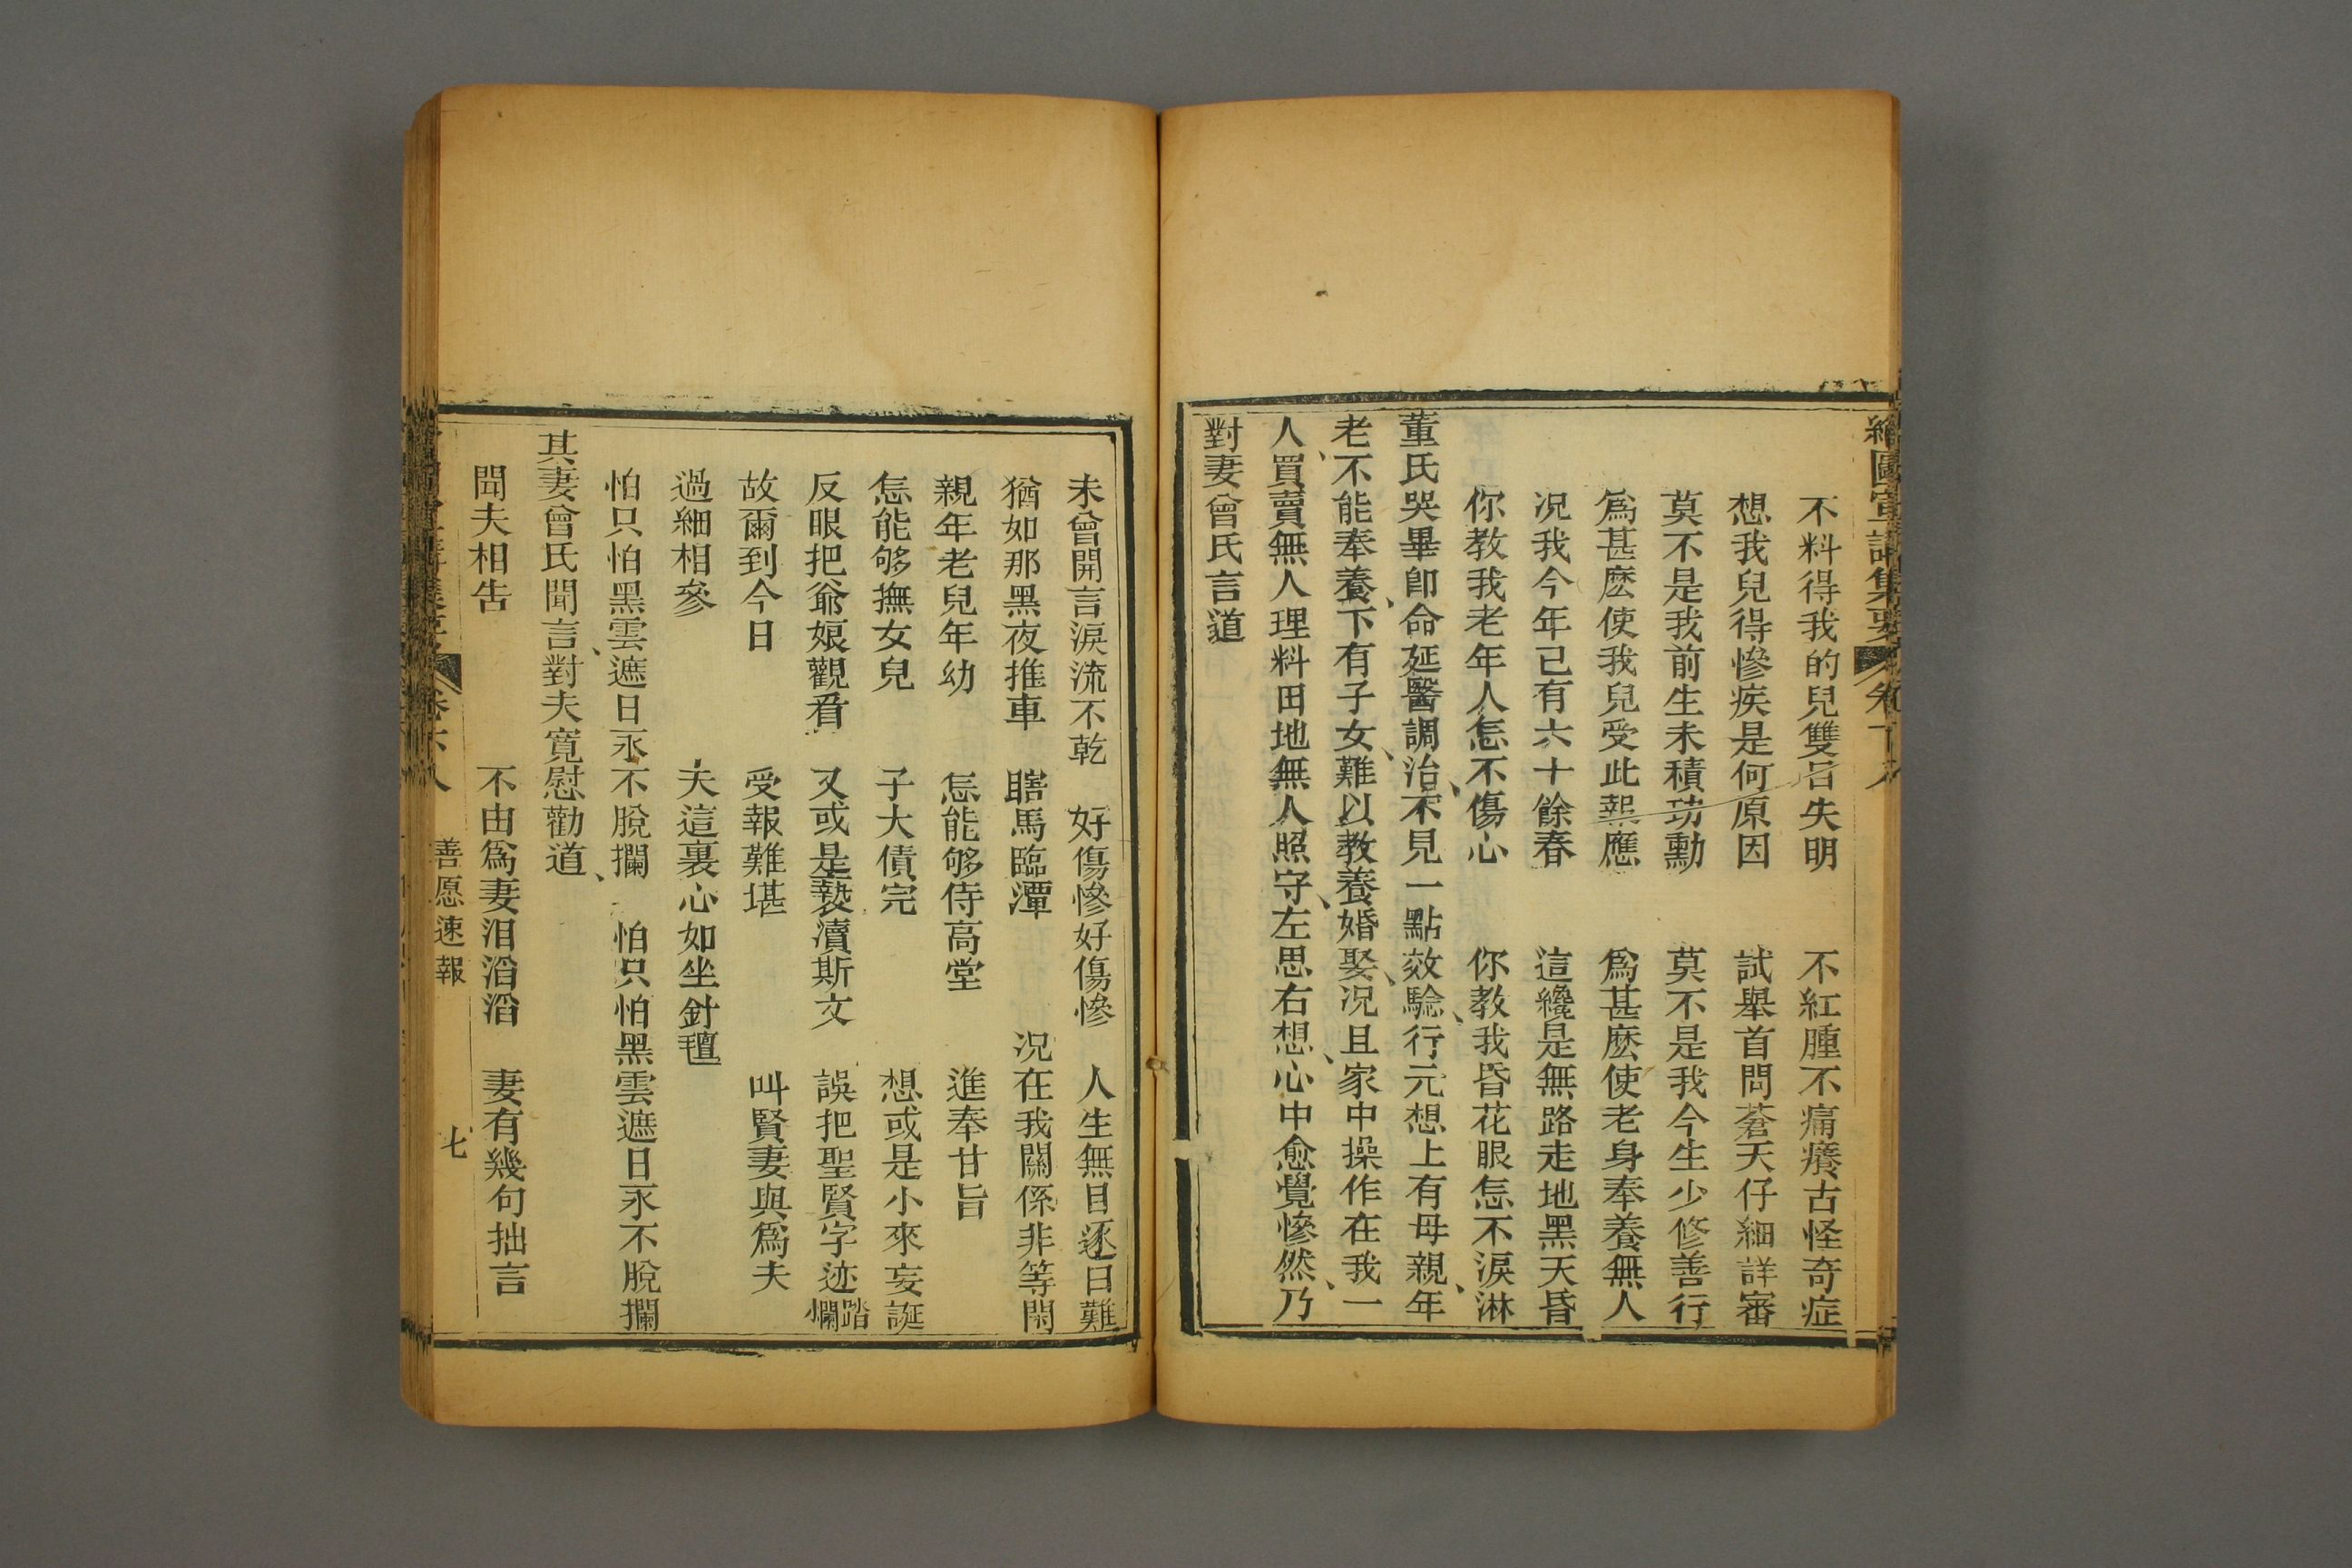 繪圖宣講集要 卷
不料得我的兒雙目失明 不紅腫不痛癢古怪奇症
想我兒得慘疾是何原因 試舉首問蒼天仔細詳審
莫不是我前生未積功勳 莫不是我今生少修善行
爲甚麽使我兒受此報應 爲甚麽使老身奉養無人
况我今年已有六十餘春 這纔是無路走地黑天昏
你教我老年人怎不傷心 你教我昏花眼怎不淚淋
董氏哭畢卽命延醫調治、不見一點效騐、行元想上有母親、年
老不能奉養、下有子女、難以教養婚娶、况且家中操作在我一
人、買賣無人理料田地無人照守、左思右想、心中愈覺慘然、乃
對妻曾氏言道
未曾開言淚流不乾 好傷慘好傷慘 人生無目逐日難
猶如那黑夜推車 瞎馬臨潭 况在我關係非等閑
親年老兒年幼 怎能够侍高堂 進奉甘旨
怎能够撫女兒 子大債完 想或是小來妄誕
反眼把爺娘觀看 又或是褻瀆斯文 誤把聖賢字迹踏爛
故爾到今日 受報難堪 叫賢妻與爲夫
過細相參 夫這裏心如坐針氊
怕只怕黑雲遮日永不脫攔 怕只怕黑雲遮日永不脫攔
其妻曾氏聞言、對夫寬慰勸道、
聞夫相吿 不由爲妻泪滔滔 妻有幾句拙言
卷六 善愿速報 七